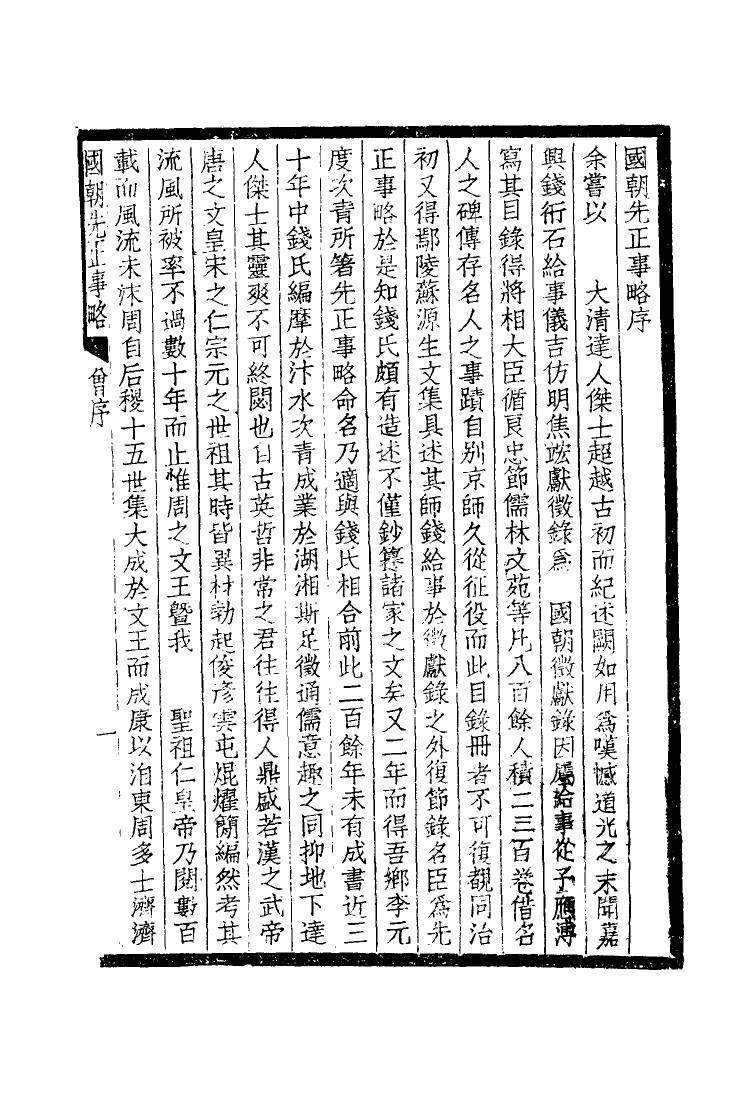 國朝先正事略序
余嘗以　　大清達人傑士超越古初而紀述闕如用爲嘆憾道光之末聞嘉
興錢衎石給事儀吉仿明焦竑獻徵錄爲　國朝徵獻錄因屬給事從子應溥
寫其目錄得將相大臣循良忠節儒林文苑等凡八百餘人積二三百卷借名
人之碑傳存名人之事蹟自別京師久從征役而此目錄冊者不可復覩同治
初又得鄢陵蘇源生文集具述其師錢給事於徵獻錄之外復節錄名臣爲先
正事略於是知錢氏頗有造述不僅鈔纂諸家之文矣又二年而得吾鄉李元
度次青所箸先正事略命名乃適與錢氏相合前此二百餘年未有成書近三
十年中錢氏編摩於汴水次青成業於湖湘斯足徵通儒意趣之同抑地下達
人傑士其靈爽不可終閟也自古英哲非常之君往往得人鼎盛若漢之武帝
唐之文皇宋之仁宗元之世祖其時皆異材勃起俊彥雲屯焜燿簡編然考其
流風所被率不過數十年而止惟周之文王曁我　　聖祖仁皇帝乃閱數百
載而風流未沫周自后稷十五世集大成於文王而成康以洎東周多士濟濟
國朝先正事略　曾序　一